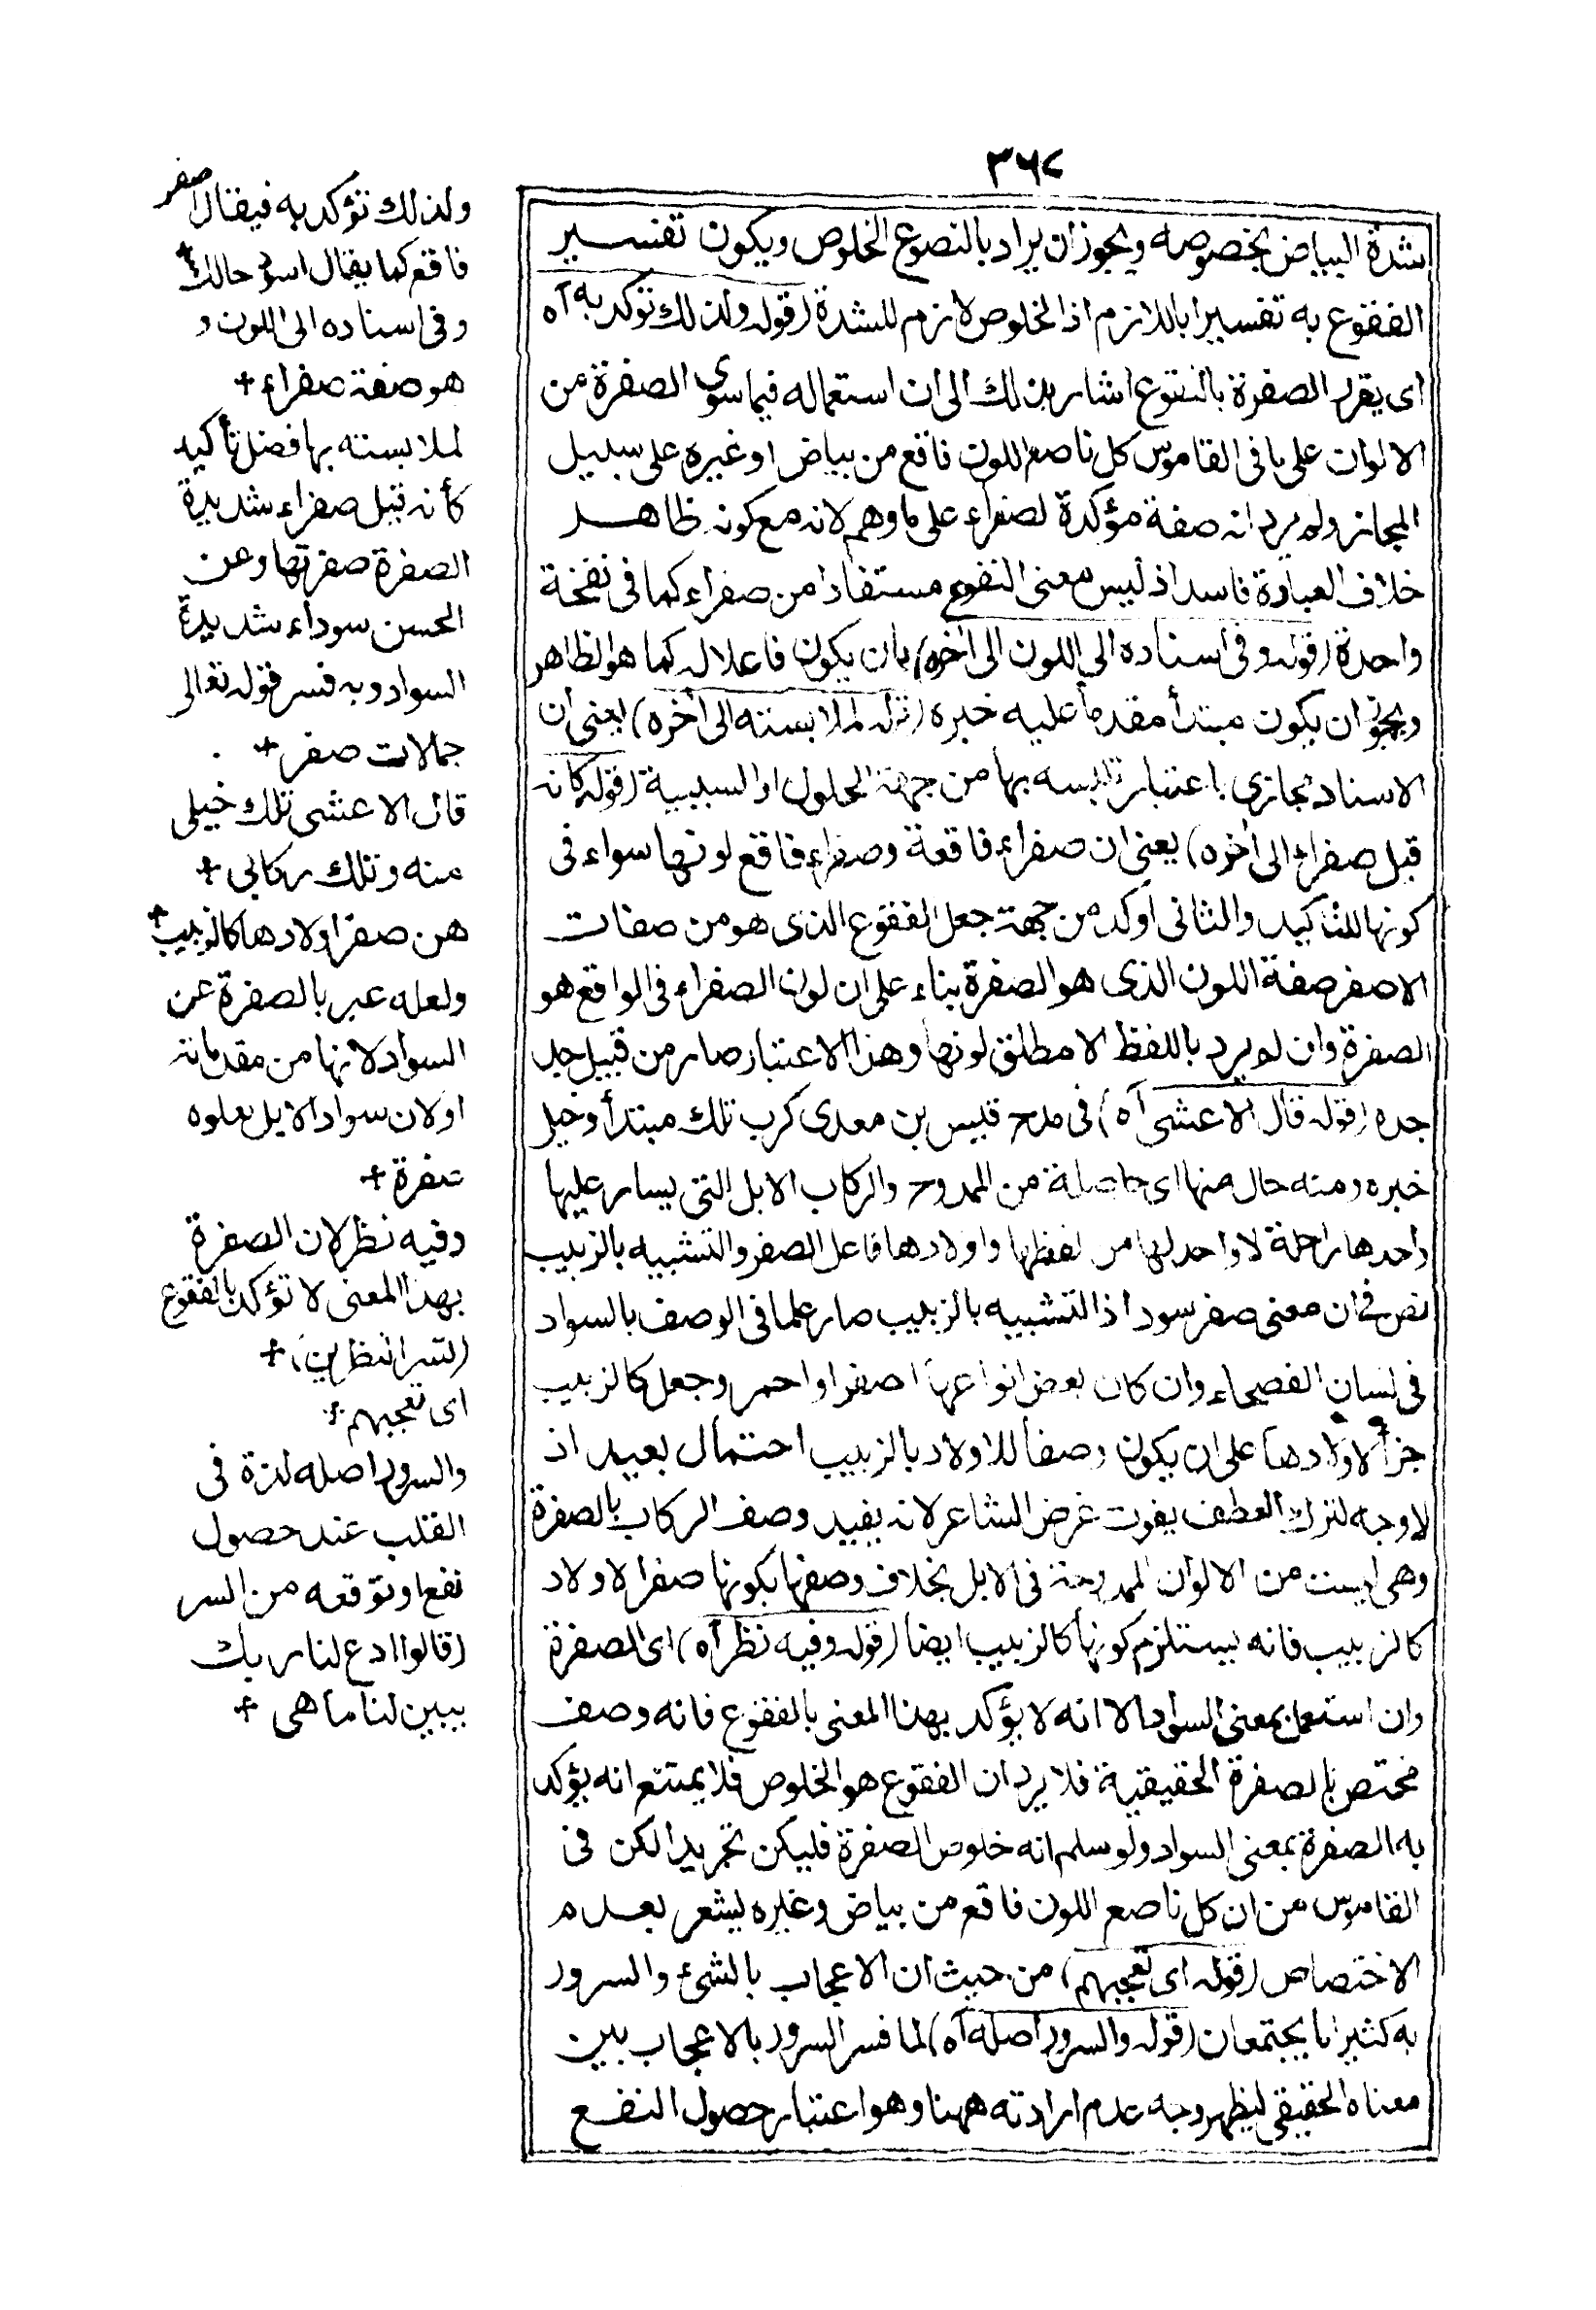 ٣٦٧
شدة البياض بخصوصه ويجوز ان يراد بالنصوع الخلوص ويكون تفسير
الفقوع به تفسيرا باللازم اذ الخلوص لازم للشدة (قوله ولذلك تؤكد به آه
اى يقرر الصفرة بالفقوع اشار بذلك الى ان استعماله فيما سوى الصفرة من
الالوان على ما فى القاموس كل ناصع اللون فاقع من بياض او غيره على سبيل
المجاز ولم يرد انه صفة مؤكدة لصفراء على ما وهم لانه مع كونه ظاهر
خلاف العبارة فاسد اذ ليس معنى الفقوع مستفادا من صفراء كما فى نفخة
واحدة (قوله وفى اسناده الى اللون الى آخره) بان يكون فاعلا له كما هو الظاهر
ويجوز ان يكون مبتدأ مقدما عليه خبره (قوله لملابسته الى آخره) يعنى ان
الاسناد مجازى باعتبار تلبسه بها من جهة الحلول او السببية (قوله كانه
قيل صفراء الى آخره) يعنى ان صفراء فاقعة وصفراء فاقع لونها سواء فى
كونها للتاكيد والثانى اوكد من جهة جعل الفقوع الذى هو من صفات
الاصفر صفة اللون الذى هو الصفرة بناء على ان لون الصفراء فى الواقع هو
الصفرة وان لم يرد باللفظ الا مطلق لونها وهذا الاعتبار صار من قبيل جد
جده (قوله قال الاعشى آه) فى مدح قيس بن معدى كرب تلك مبتدأ وخيل
خبره ومنه حال منها اى حاصلة من الممدوح والركاب الابل التى يسار عليها
واحدها راحلة لا واحد لها من لفظها واولادها فاعل الصفر والتشبيه بالزبيب
نص فى ان معنى صفر سود اذ التشبيه بالزبيب صار علما فى الوصف بالسواد
فى لسان الفصحاء وان كان بعض انواعها اصفر او احمر وجعل كالزبيب
جزأ لاولادها على ان يكون وصفا للاولاد بالزبيب احتمال بعيد اذ
لا وجه لترك العطف يفوت غرض الشاعر لانه يفيد وصف الركاب بالصفرة
وهى ليست من الالوان الممدوحة فى الابل بخلاف وصفها بكونها صفر الاولاد
كالزبيب فانه يستلزم كونها كالزبيب ايضا (قوله وفيه نظر آه) اى الصفرة
وان استعمل بمعنى السواد الا انه لا يؤكد بهذا المعنى بالفقوع فانه وصف
مختص بالصفرة الحقيقية فلا يرد ان الفقوع هو الخلوص فلا يمتنع انه يؤكد
به الصفرة بمعنى السواد ولو سلم انه خلوص الصفرة فليكن تجريدا لكن فى
القاموس من ان كل ناصع اللون فاقع من بياض وغيره يشعر بعدم
الاختصاص (قوله اى تعجبهم) من حيث ان الاعجاب بالشئ والسرور
به كثيرا ما يجتمعان (قوله والسرور اصله آه) لما فسر السرور بالاعجاب بين
معناه الحقيقى ليظهر وجه عدم ارادته ههنا وهو اعتبار حصول النفع
ولذلك تؤكد به فيقال اصفر
فاقع كما يقال اسود حالك +
وفى اسناده الى اللون و
هو صفة صفراء +
لملابسته بها فضل تأكيد
كأنه قيل صفراء شديدة
الصفرة صفرتها وعن
الحسن سوداء شديدة
السواد وبه فسر قوله تعالى
جمالات صفر +
قال الاعشى تلك خيلى
منه وتلك ركابى +
هن صفر اولادها كالزبيب +
ولعله عبر بالصفرة عن
السواد لانها من مقدماته
او لان سواد الابل يعلوه
صفرة +
وفيه نظر لان الصفرة
بهذا المعنى لا تؤكد بالفقوع
(تسر الناظرين) +
اى تعجبهم +
والسرور اصله لذة فى
القلب عند حصول
نفع او توقعه من السر
(قالوا ادع لنا ربك
يبين لنا ما هى +